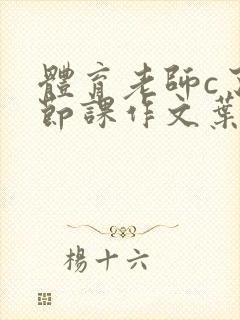 體育老師c
節課作文葉
楊十六